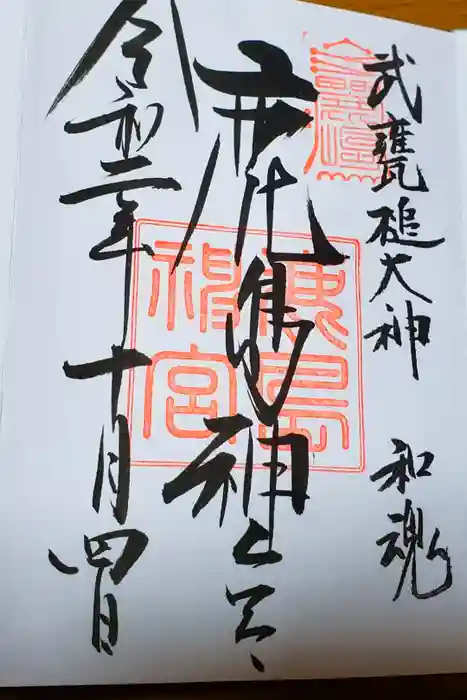 武甕槌大神 和魂
鹿島神宮
令和二年十月四日
鹿島
神宮